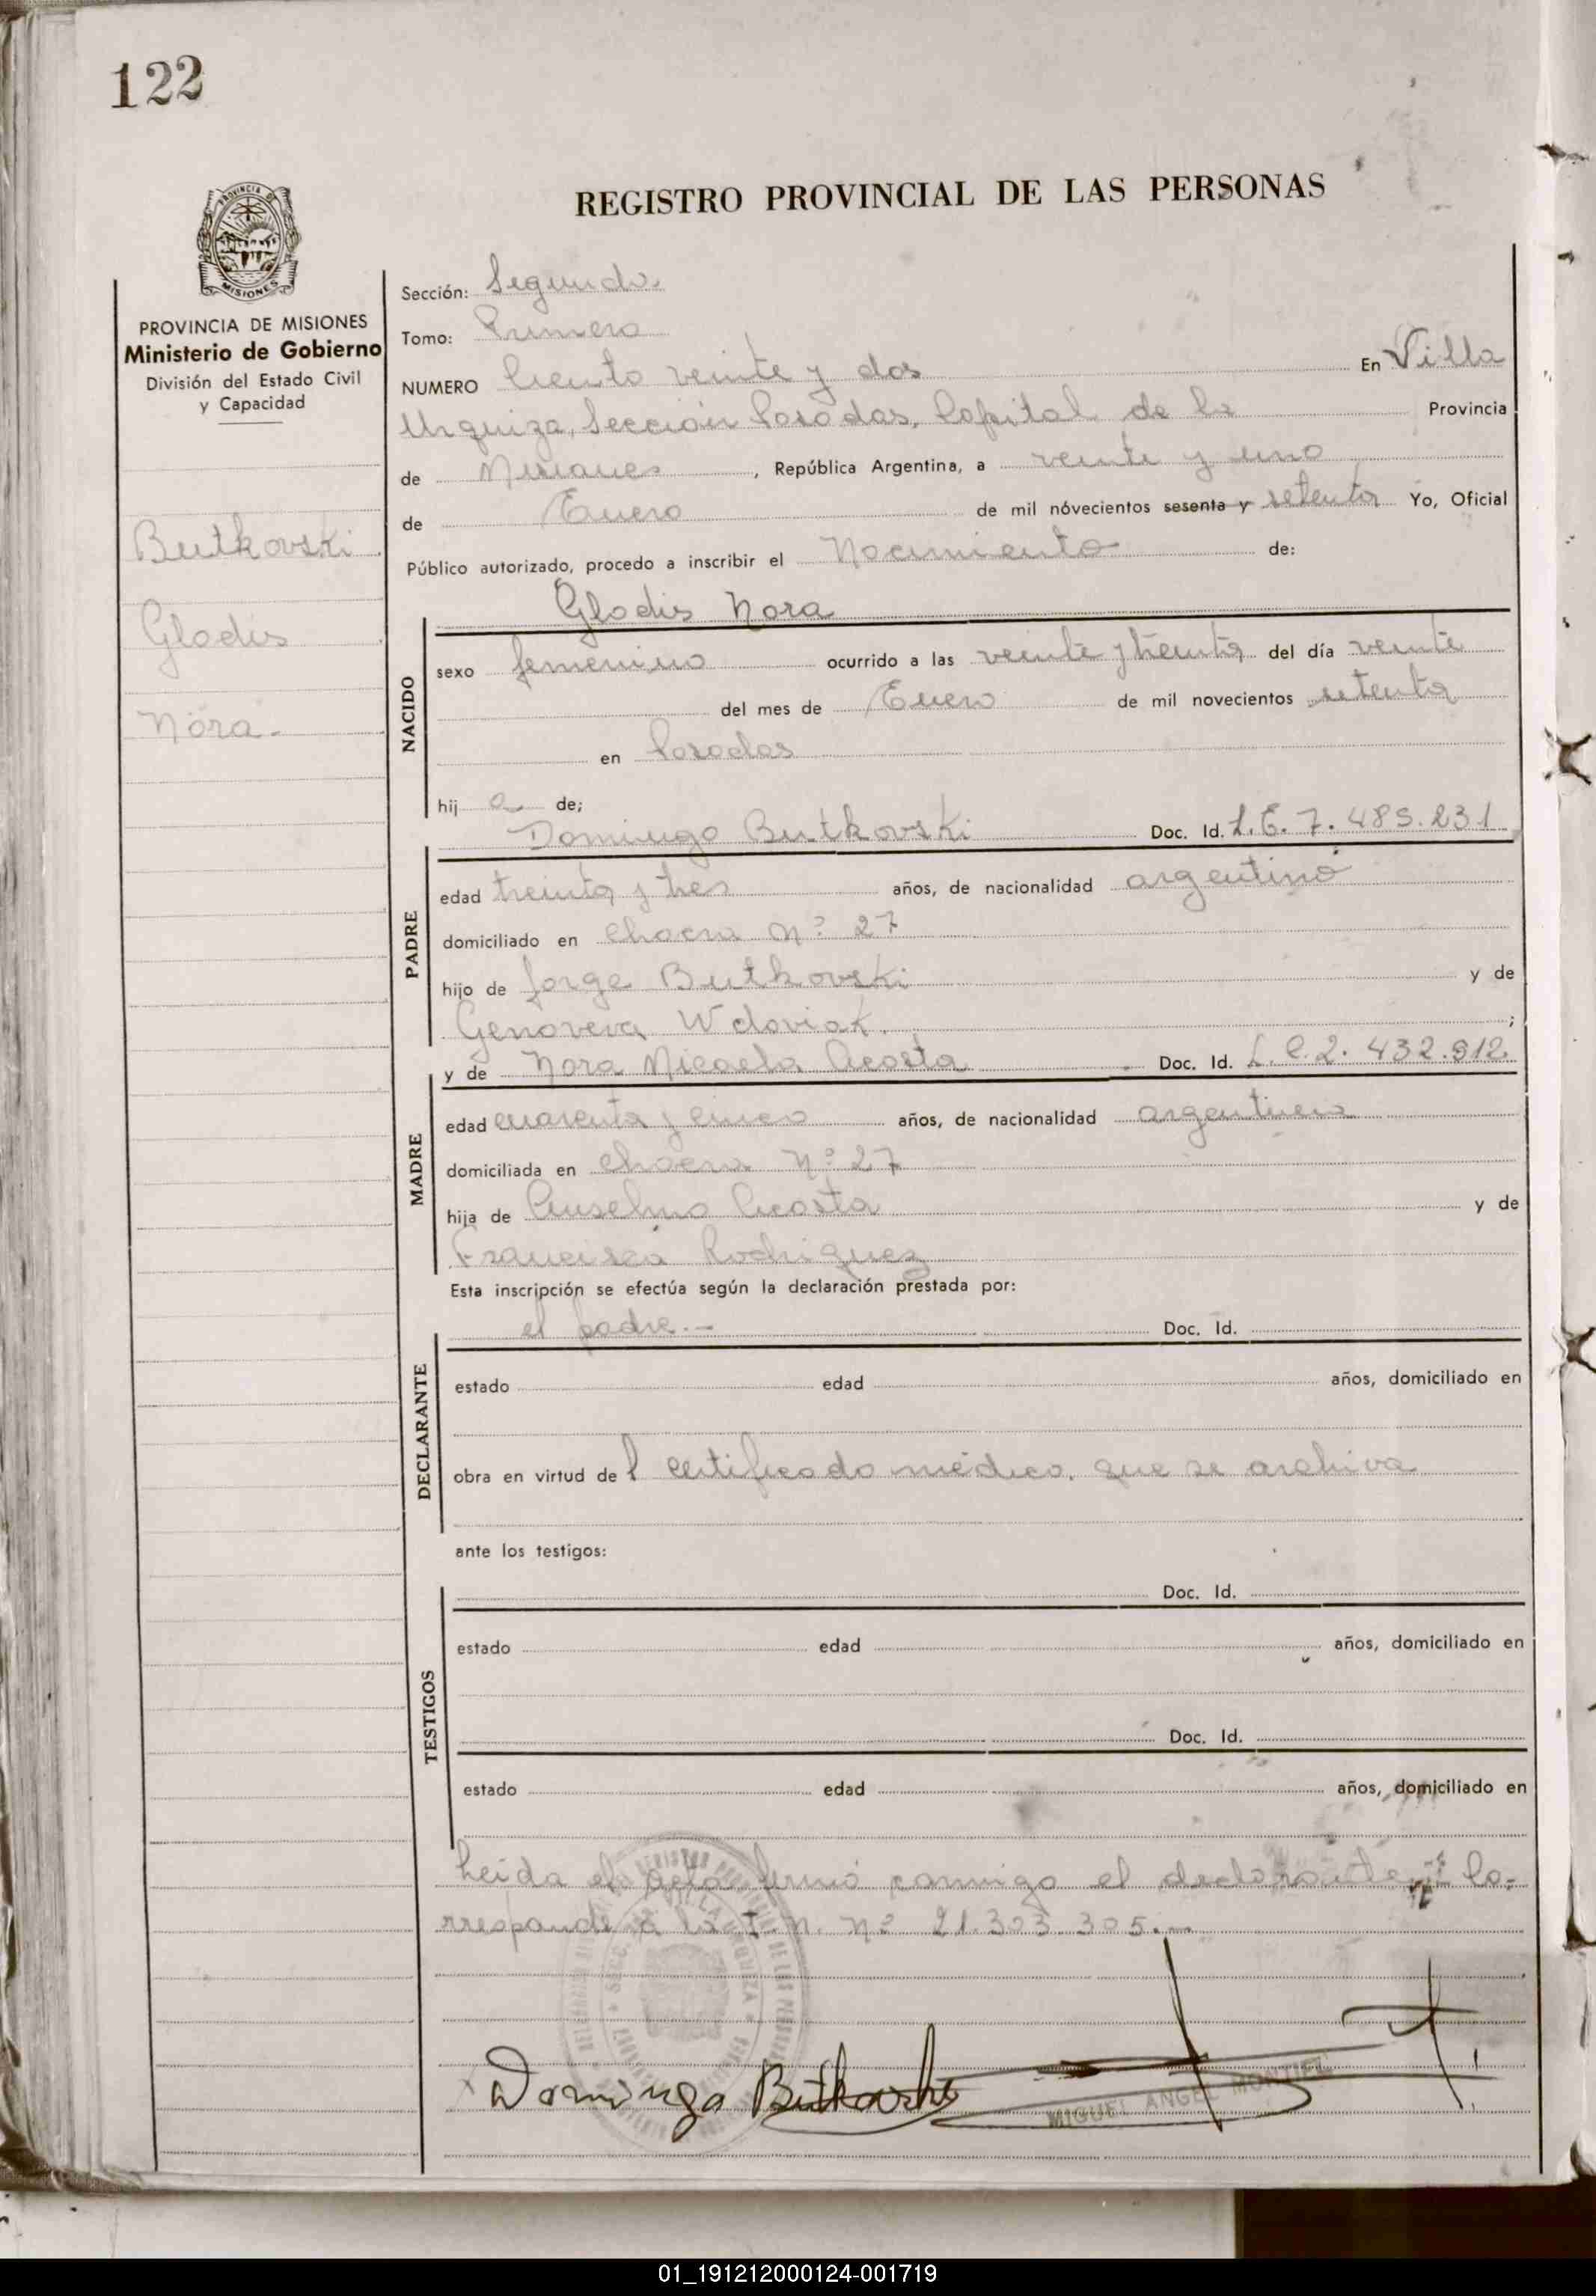 122
REGISTRO PROVINCIAL DE LAS PERSONAS
PROVINCIA DE
MISIONES
PROVINCIA DE MISIONES
Ministerio de Gobierno
División del Estado Civil
y Capacidad
Butkovski
Gladis
Nora.-
Sección: Segunda.
Tomo: Primero
NUMERO Ciento veinte y dos En Villa
Urquiza, Sección Posadas, Capital de la Provincia
de Misiones, República Argentina, a veinte y uno
de Enero de mil nóvecientos sesenta y setenta Yo, Oficial
Público autorizado, procedo a inscribir el Nacimiento de:
Gladis Nora
NACIDO
sexo femenino ocurrido a las veinte y treinta del día veinte
del mes de Enero de mil novecientos setenta
en Posadas
hij a de;
Domingo Butkovski Doc. Id. L.E. 7.485.231
PADRE
edad treinta y tres años, de nacionalidad argentino
domiciliado en Chacra Nº 27
hijo de Jorge Butkovski y de
Genoveva Wdoviak. ;
y de Nora Micaela Acosta Doc. Id. L.C. 2.432.912
MADRE
edad cuarenta y cinco años, de nacionalidad argentina
domiciliada en Chacra Nº 27
hija de Anselmo Acosta y de
Francisca Rodriguez
Esta inscripción se efectúa según la declaración prestada por:
el padre.- Doc. Id.
DECLARANTE
estado edad años, domiciliado en
obra en virtud del certificado médico, que se archiva
ante los testigos:
Doc. Id.
TESTIGOS
estado edad años, domiciliado en
Doc. Id.
estado edad años, domiciliado en
Leida el acta firmó conmigo el declarante. Co-
rresponde a la I. N. Nº 21.303.305.-
Domingo Butkovski
MIGUEL ANGEL MONTIEL
01_191212000124-001719